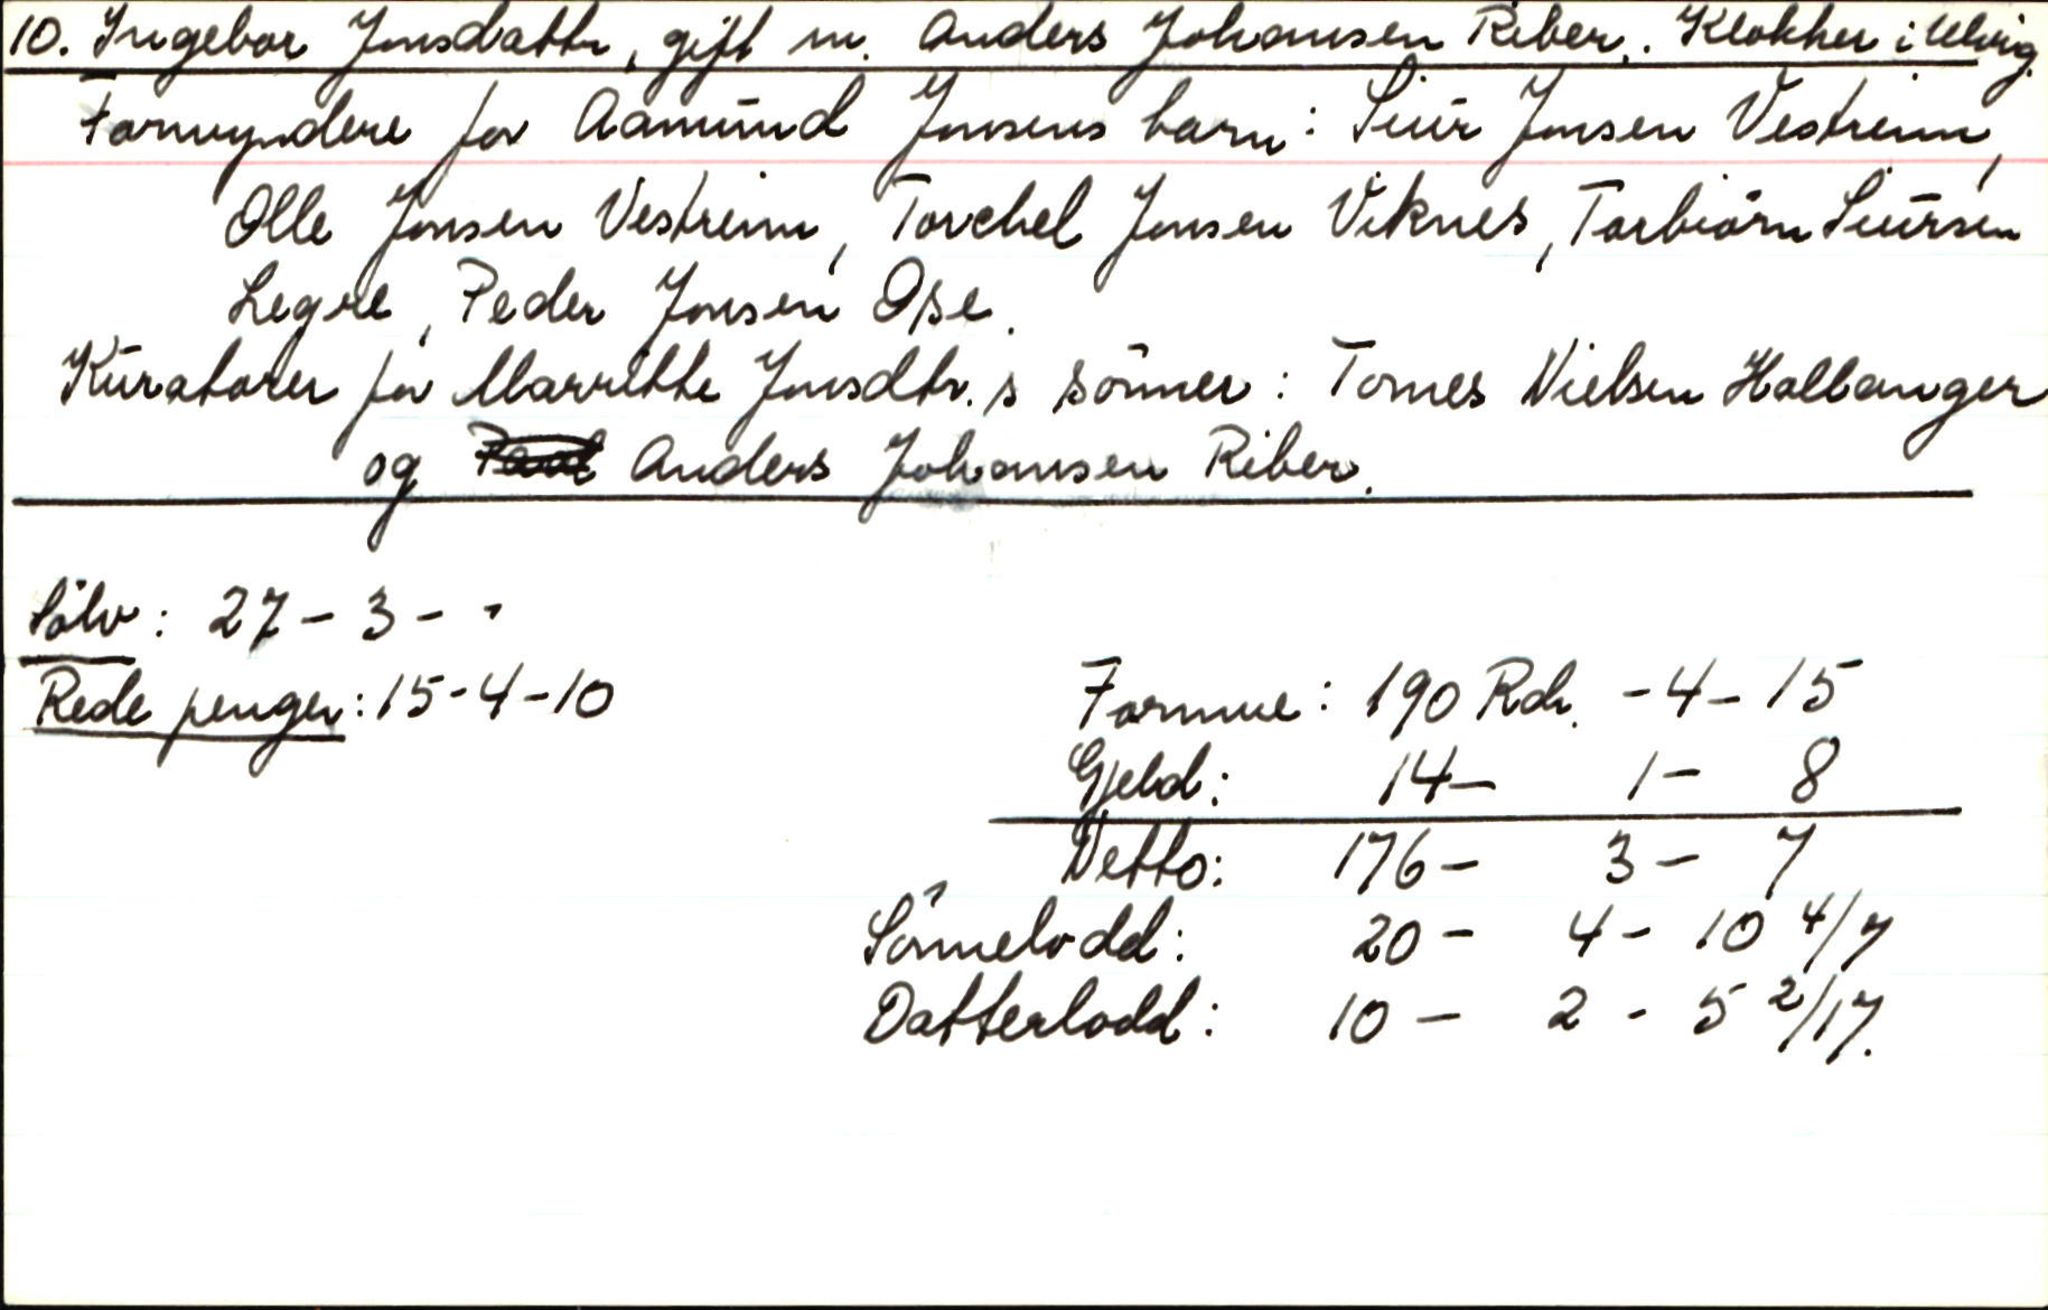 10. Ingebor Jonsdattr, gift m. Anders Johansen Riber, Klokker i Ulvig.
Formyndere for Aamund Jonsens barn: Siur Jonsen Vestreim,
Olle Jonsen Vestreim, Torchel Jonsen Viknes, Torbiörn Siursen
Legre, Peder Jonsen Ose.
Kuratorer for Marritte Jonsdtr.s sönner: Tomes Nielsen Hallanger
og Anders Johansen Riber.
Sölv: 27 - 3 - -
Rede penger: 15-4-10
Formue: 190 Rdr. - 4 - 15
Gjeld: 14 - 1 - 8
Netto: 176 - 3 - 7
Sönnelodd: 20 - 4 - 10 4/7
Datterlodd: 10 - 2 - 5 2/17.